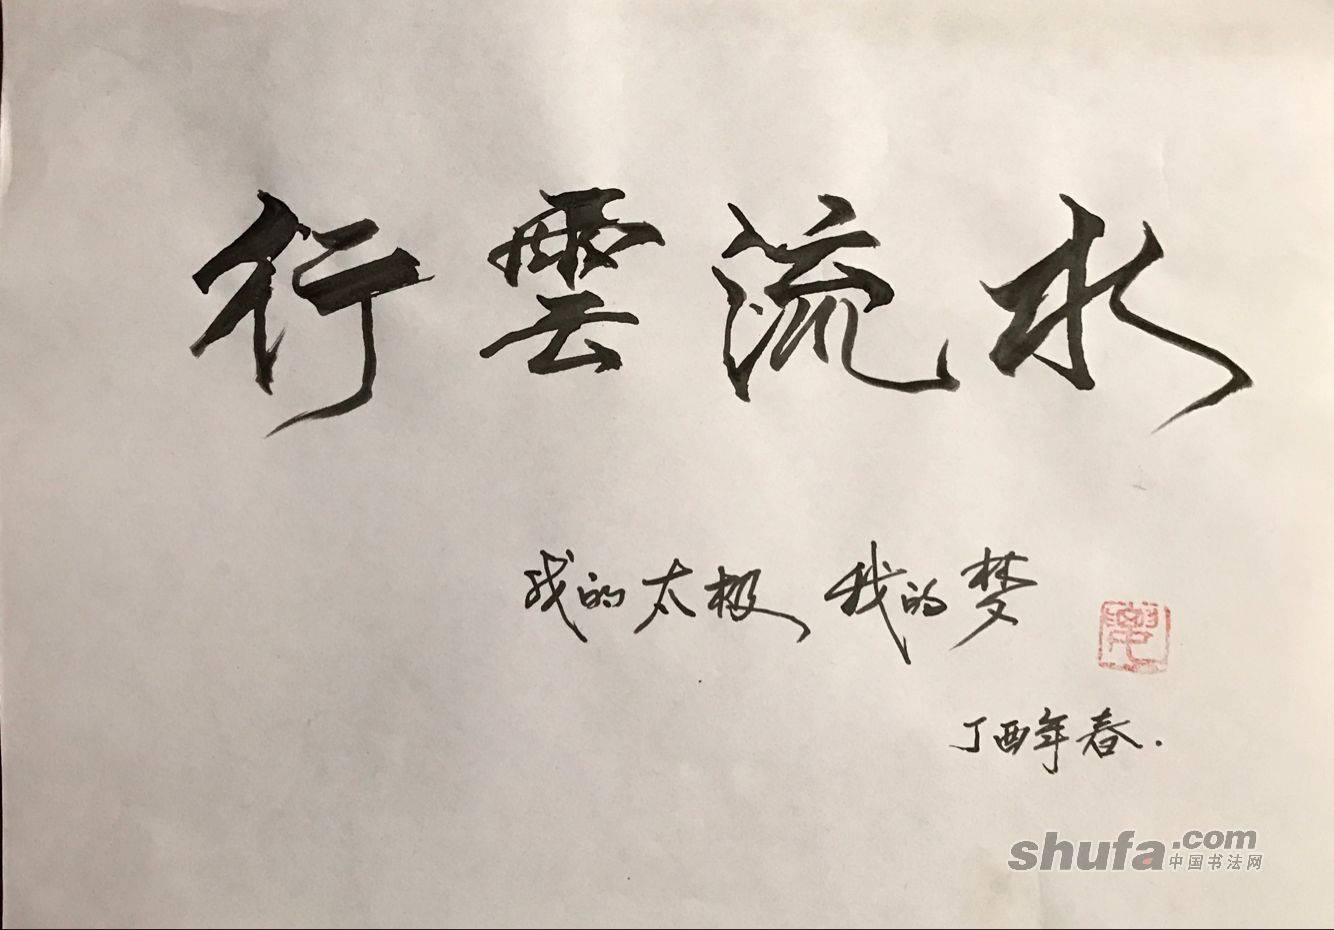 行雲流水
我的太极 我的梦
丁酉年春.
shufa.com
中国书法网